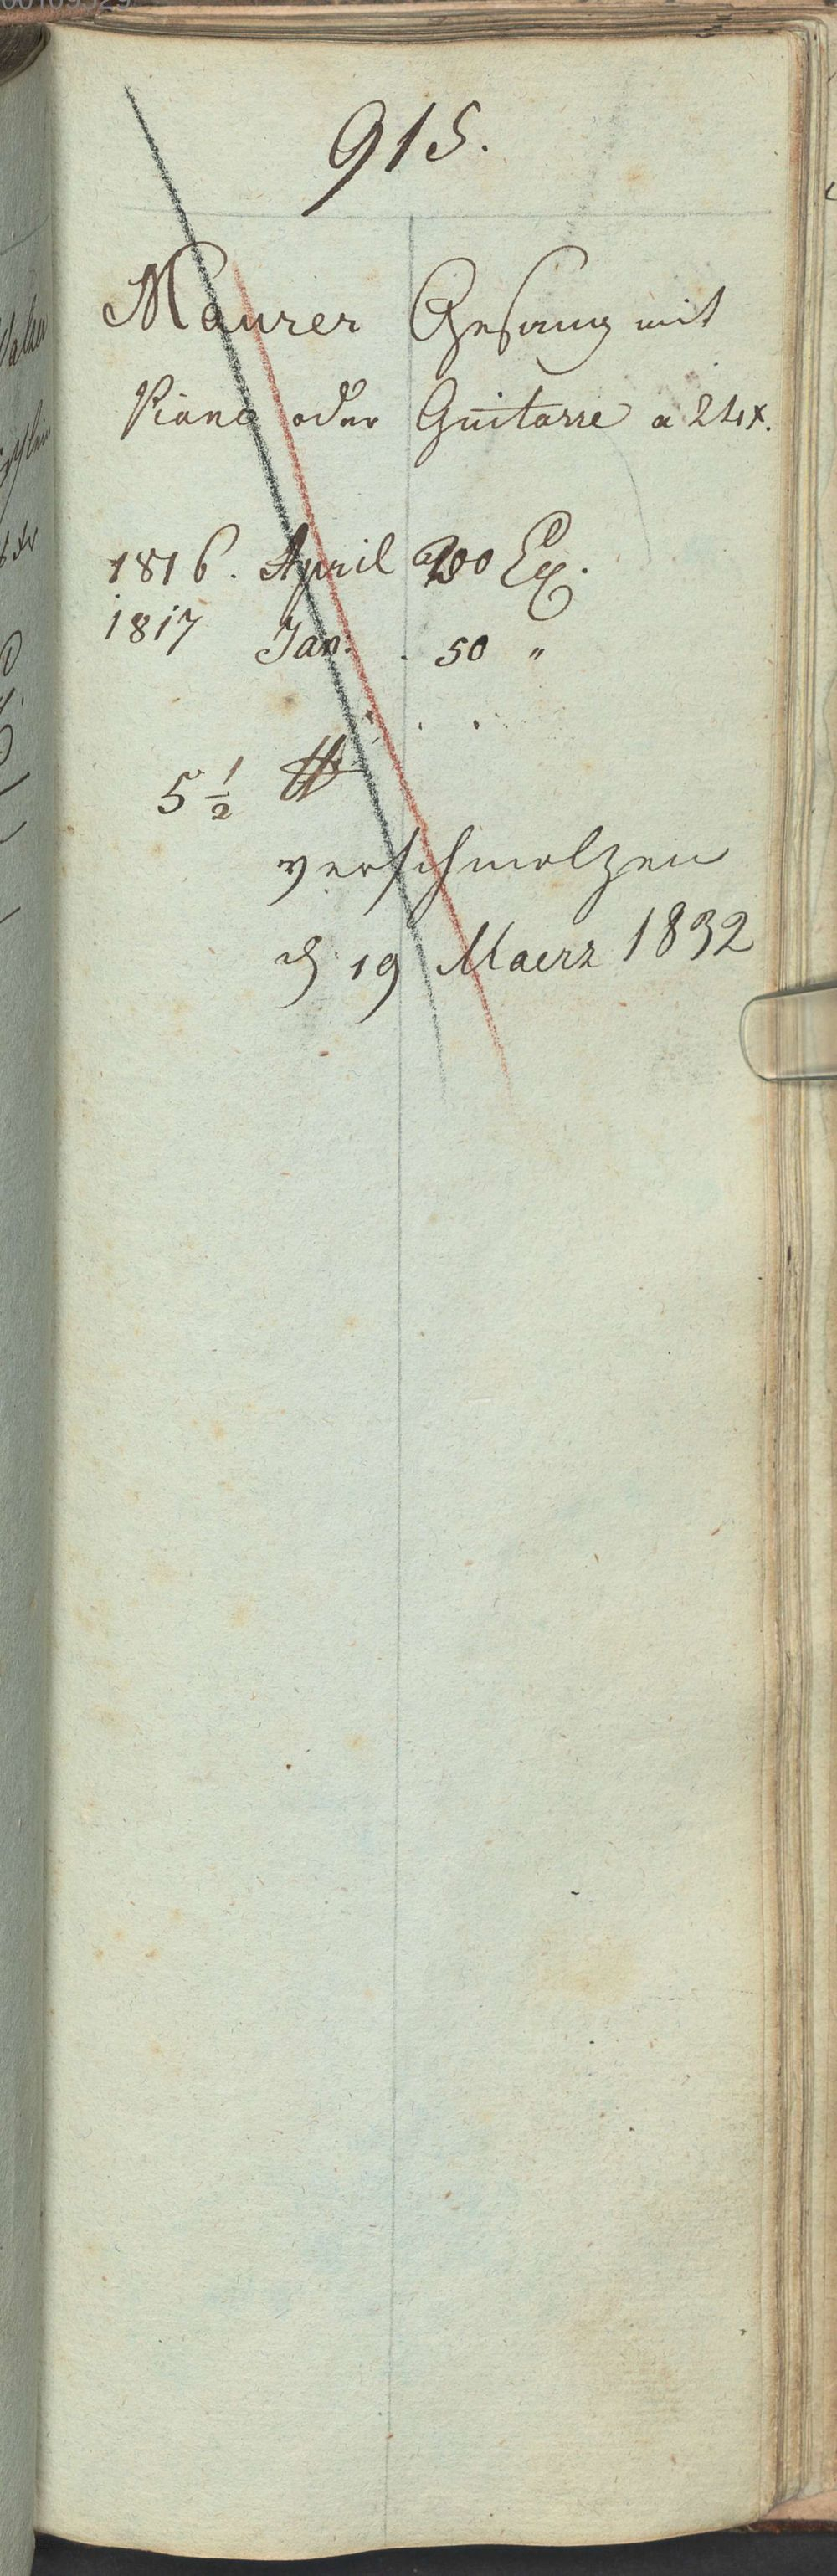 915.
Maurer Gesang mit
Piano oder Guitarre a 24x.
1816. April 200 Ex.
1817 Jan: . 50 "
5 1/2 ℔
verschmolzen
d. 19 Maerz 1832